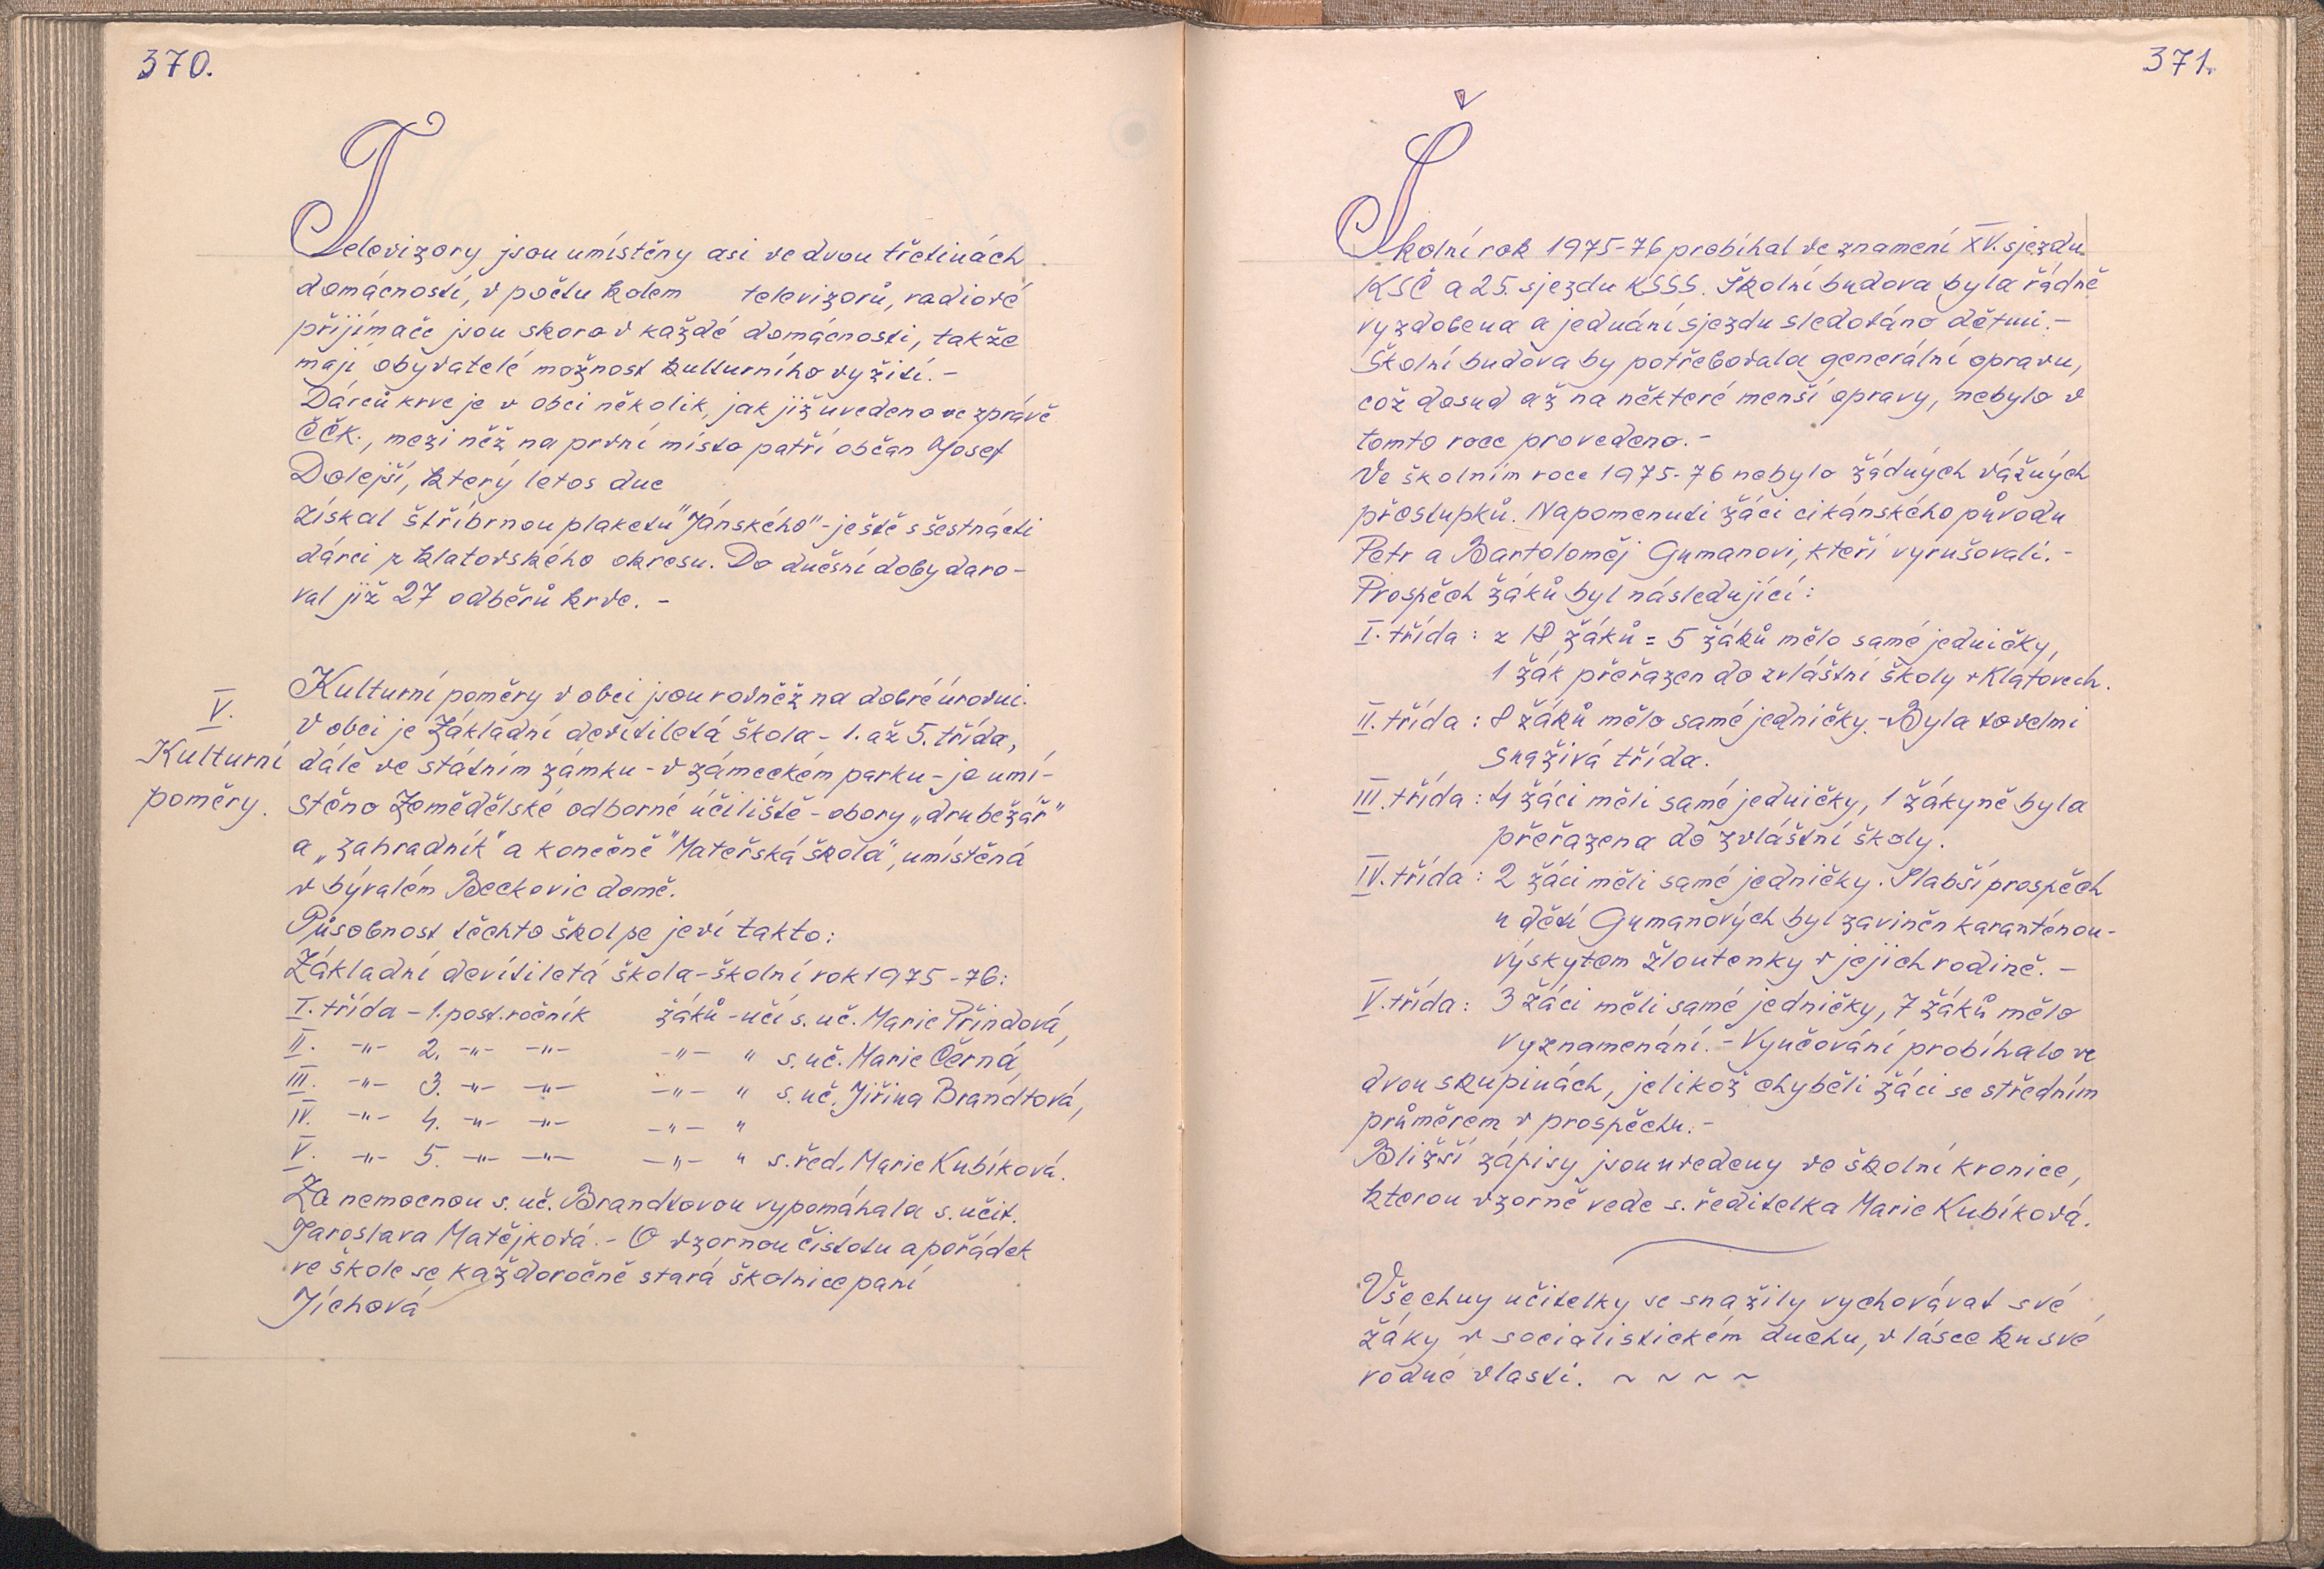 370.
Televizory jsou umístěny asi ve dvou třetinách
domácností, v počtu kolem televizorů, radiové
přijímače jsou skoro v každé domácnosti, takže
mají obyvatelé možnost kulturního vyžití.-
Dárců krve je v obci několik, jak již uvedeno ve zprávě
ČČK., mezi něž na první místo patří občan Josef
Dolejší, který letos dne
získal stříbrnou plaketu "Jánského"-ještě s šestnácti
dárci z klatovského okresu. Do dnešní doby daro-
val již 27 odběrů krve. -
V.
Kulturní
poměry.
Kulturní poměry v obci jsou rovněž na dobré úrovni.
V obci je Základní devítiletá škola - 1. až 5. třída,
dále ve státním zámku - v zámeckém parku - je umí-
stěno Zemědělské odborné účiliště - obory „drubežář"
a „zahradník" a konečně "Mateřská škola", umístěná
v bývalém Beckovic domě.
Působnost těchto škol se jeví takto:
Základní devítiletá škola-školní rok 1975-76:
I. třída - 1. post. ročník žáků - učí s. uč. Marie Třindová,
II. -"- 2. -"- -"- -"- " s. uč. Marie Černá,
III. -"- 3. -"- -"- -"- " s. uč. Jiřina Brandtová,
IV. -"- 4. -"- -"- -"- "
V. -"- 5. -"- -"- -"- " s. řed. Marie Kubíková.
Za nemocnou s. uč. Brandtovou vypomáhala s. učit.
Jaroslava Matějková. - O vzornou čistotu a pořádek
ve škole se každoročně stará školnice paní
Jíchová
371.
Školní rok 1975-76 probíhal ve znamení XV. sjezdu
KSČ a 25. sjezdu KSSS. Školní budova byla řádně
vyzdobena a jednání sjezdu sledováno dětmi.-
Školní budova by potřebovala generální opravu,
což dosud až na některé menší opravy, nebylo v
tomto roce provedeno.-
Ve školním roce 1975-76 nebylo žádných vážných
přestupků. Napomenuti žáci cikánského původu
Petr a Bartoloměj Gumanovi, kteří vyrušovali.-
Prospěch žáků byl následující:
I. třída : z 18 žáků = 5 žáků mělo samé jedničky,
1 žák přeřazen do zvláštní školy v Klatovech.
II. třída : 8 žáků mělo samé jedničky.-Byla to velmi
snaživá třída.
III. třída : 4 žáci měli samé jedničky, 1 žákyně byla
přeřazena do zvláštní školy.
IV. třída : 2 žáci měli samé jedničky. Slabší prospěch
u dětí Gumanových byl zaviněn karanténou-
výskytem žloutenky v jejich rodině. -
V. třída : 3 žáci měli samé jedničky, 7 žáků mělo
vyznamenání. - Vyučování probíhalo ve
dvou skupinách, jelikož chyběli žáci se středním
průměrem v prospěchu.-
Bližší zápisy jsou uvedeny ve školní kronice,
kterou vzorně vede s. ředitelka Marie Kubíková.
Všechny učitelky se snažily vychovávat své
žáky v socialistickém duchu, v lásce ku své
rodné vlasti. ~ ~ ~ ~